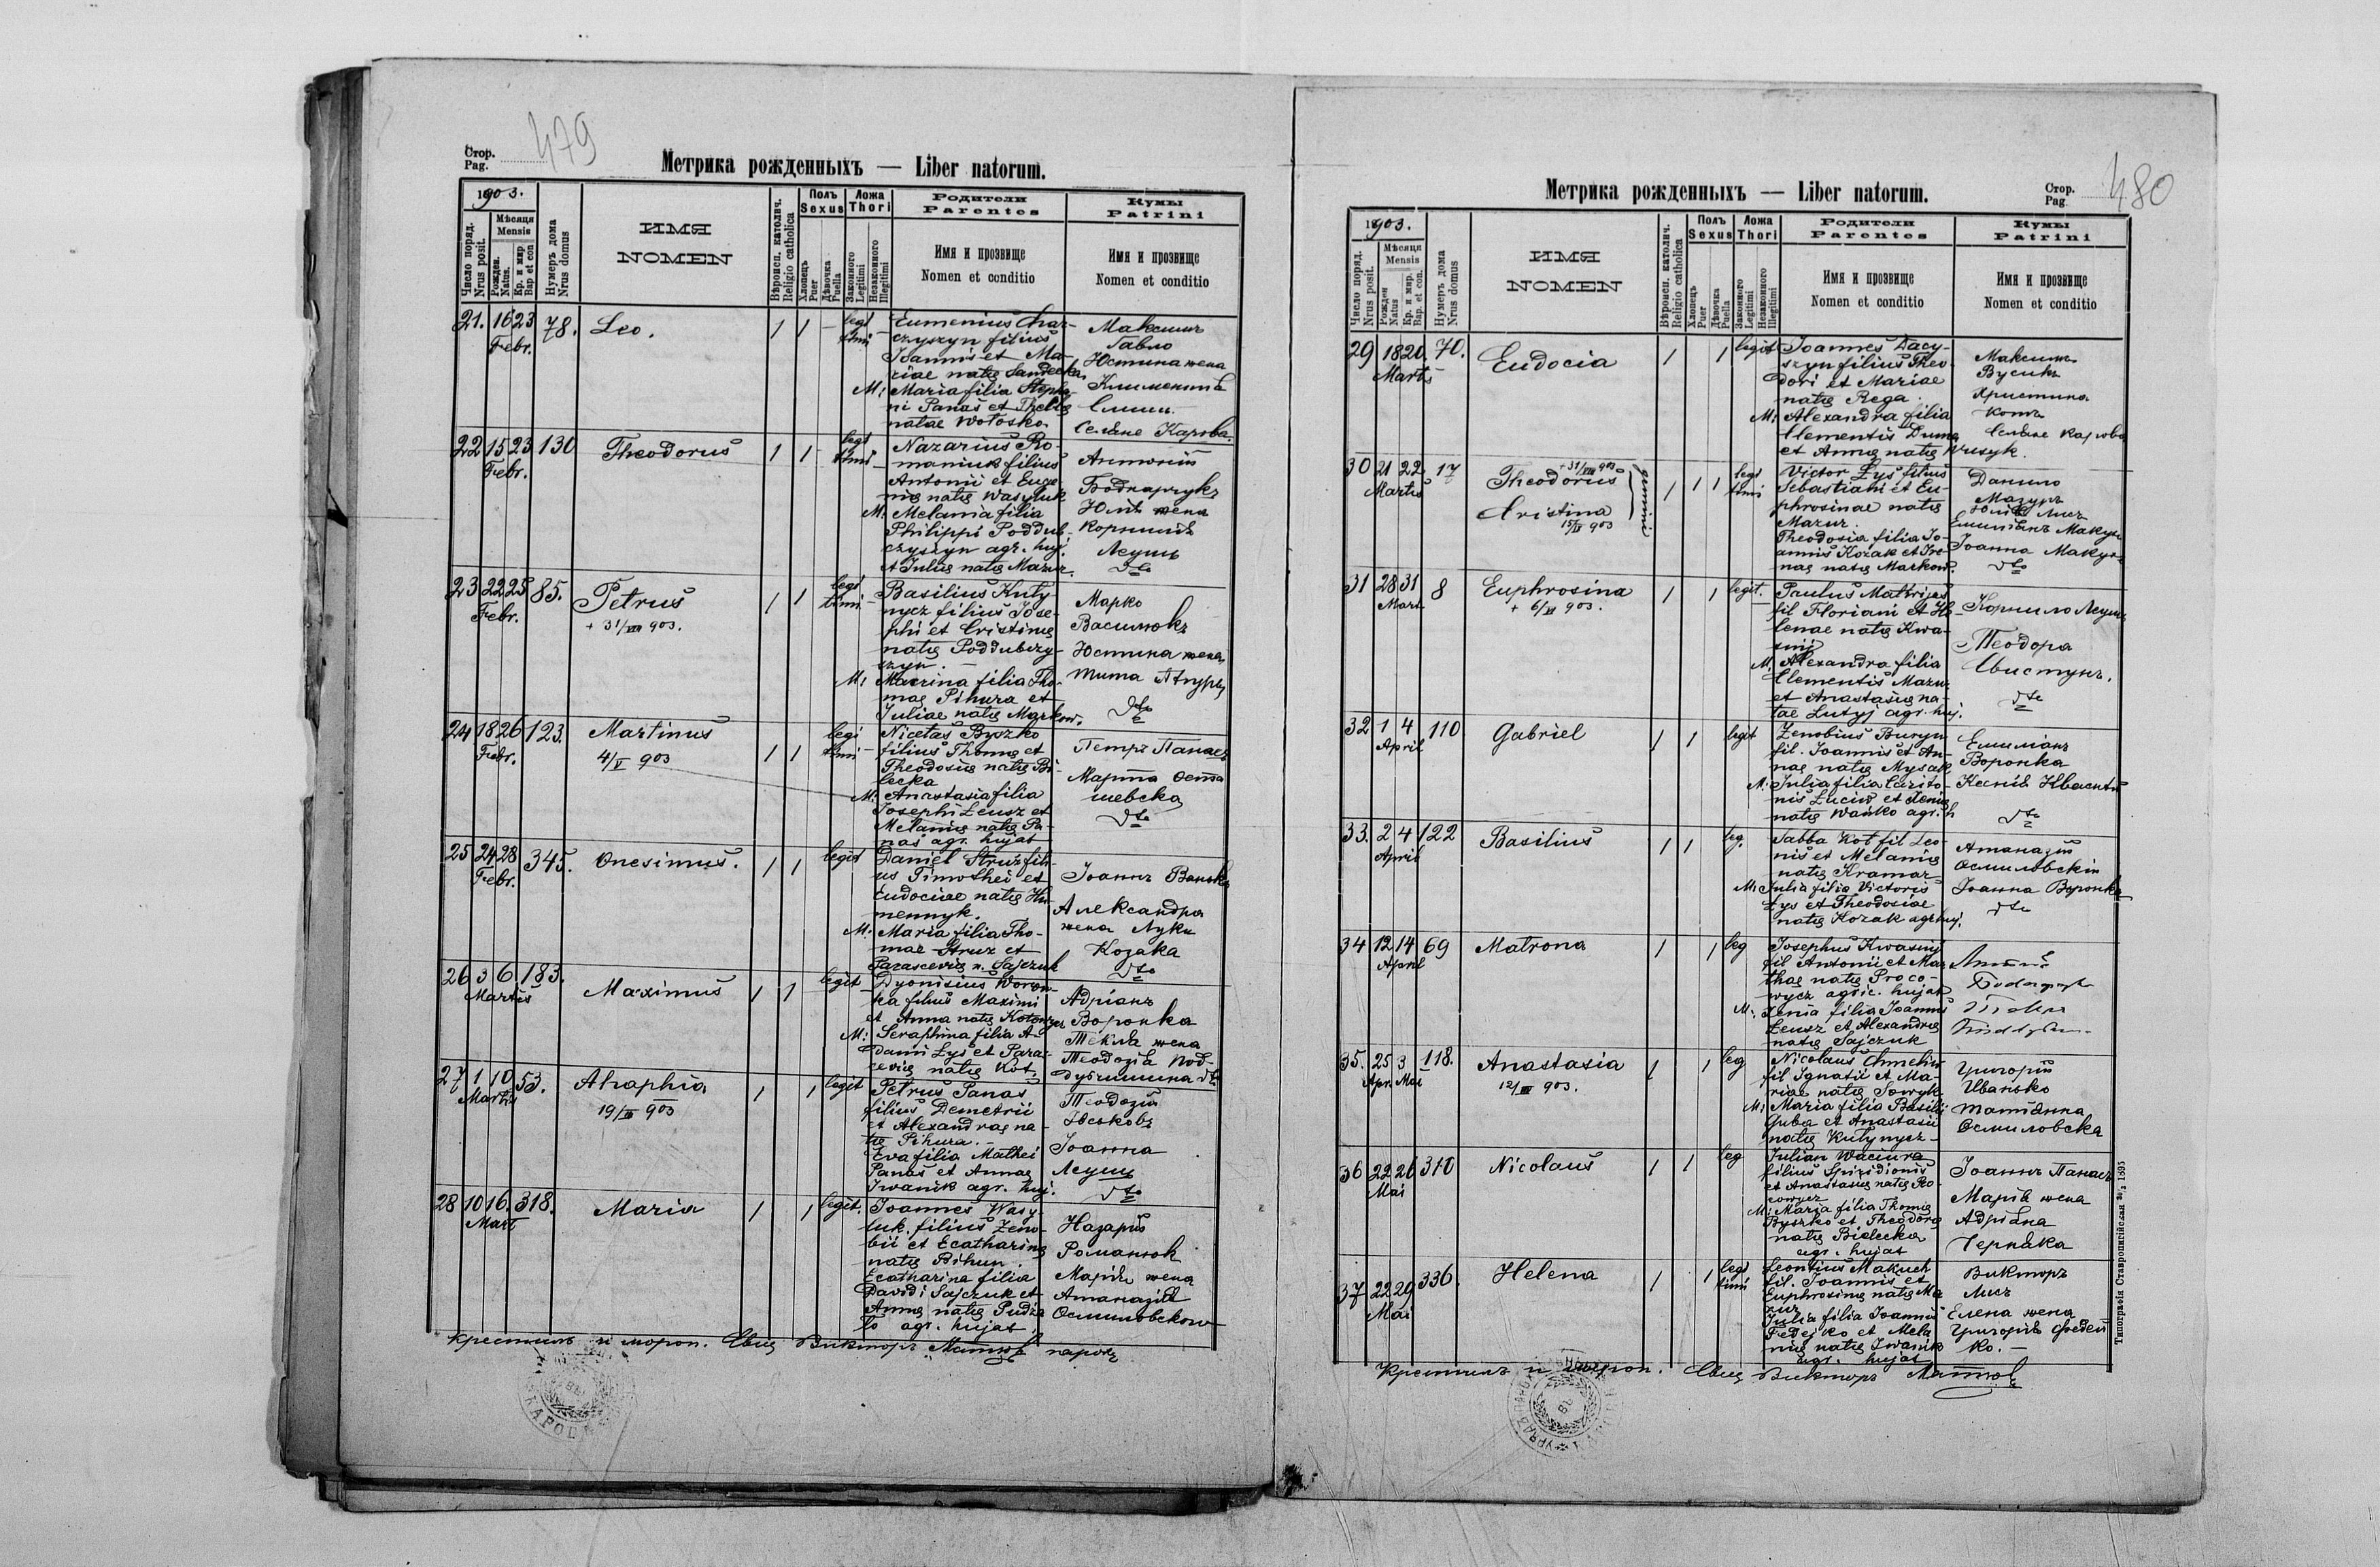 Стор.
Pag. 479
Метрика рожденныхъ — Liber natorum.
1903.
Число поряд.
Nrus posit.
Мѣсяця
Mensis
Рожден.
Natus.
Кр. и мир
Bap. et con
Нумеръ дома
Nrus domus
ИМЯ
NOMEN
Вѣроисп. католич.
Religio catholica
Полъ
Sexus
Хлопець
Puer
Дѣвочка
Puella
Ложа
Thori
Законного
Legitimi
Незаконного
Illegitimi
Родители
Parentes
Имя и прозвище
Nomen et conditio
Кумы
Patrini
Имя и прозвище
Nomen et conditio
21. 16 23 78. Leo. 1 1 – legi
Febr. timi
Eumenius Char-
czyszyn filius
Joannis et Ma-
riae natę Sandecka
M: Maria filia Stepha-
ni Panas et Theklę
natae Wołosko.
Максимъ
Гавло
Юстина жена
Климентія
Селяне Карова.
22 15 23 130 Theodorus 1 1 – legi
Febr. timi
Nazarius Ro-
maniuk filius
Antonii et Euge-
nię natę Wasyluk
M: Melania filia
Philippi Poddub-
czyszyn agr. huj.
et Julię natę Mazur.
Антоній
Боднарчукъ
Юлія жена
Корнилія
Леушъ
dto
23 22 25 85. Petrus 1 1 legi
Febr. timi
+ 31/VIII 903.
Basilius Kuty-
nycz filius Jose-
phi et Cristinę
natę Poddubczy-
szyn. –
M: Macrina filia Tho-
mae Pihura et
Juliae natę Markow.
Марко
Василюкъ
Юстина жена
Тита Пѣгуры
dto
24 18 26 123. Martinus 1 1 legi
Febr. timi
4/V 903
Nicetas Byszko
filius Thomę et
Theodosię natę Bi-
lecka
M: Anastasia filia
Josephi Leusz et
Melanię natę Pa-
nas agr. hujat
Петръ Панасъ
Марта Оста
шевска
dto
25 24 28 345. Onesimus. 1 1 legit
Febr.
Daniel Struz fili-
us Timothei et
Eudociae natę Hu-
mennyk.
M: Maria filia Tho-
mae Struz et
Parascevię n. Sajczuk
Іоаннъ Ванько
Александра
жена Луки
Козака
dto
26 3 6 183. Maximus 1 1 legit
Martis
Dyonisius Woron-
ka filius Maximi
et Anna natę
M: Seraphina filia A-
dami Lys et Para-
cevię natę Kot.
Адріанъ
Воронка
Текла жена
Теодозія Под-
дубчишина dto
27 1 10 53. Ahaphia 1 1 legit
Martis
19/III 903
Petrus Panas
filius Demetrii
et Alexandrae na-
tę Pihura. –
Eva filia Mathei
Panas et Annae
Iwanik agr. huj.
Теодозій
Юськовъ
Іоанна
Леушъ
dto
28 10 16. 318. Maria 1 1 legit.
Mart
Joannes Wasy-
luk. filius Zeno-
bii et Ecatharinę
natę Pihun.
Ecatharina filia
Davidi Sajczuk et
Annę natę Pudża
ło agr. hujat
Назарій
Романюк
Марія жена
Атаназія
Осмиловского
Крестилъ и мѵроп. Свщ Викторъ Матюкъ парохъ

Метрика рожденныхъ — Liber natorum.
Стор.
Pag. 480
1903.
Число поряд.
Nrus posit.
Мѣсяця
Mensis
Рожден
Natus
Кр. и мир.
Bap. et con.
Нумеръ дома
Nrus domus
ИМЯ
NOMEN
Вѣроисп. католич.
Religio catholica
Полъ
Sexus
Хлопець
Puer
Дѣвочка
Puella
Ложа
Thori
Законного
Legitimi
Незаконного
Illegitimi
Родители
Parentes
Имя и прозвище
Nomen et conditio
Кумы
Patrini
Имя и прозвище
Nomen et conditio
29 18 20. 70. Eudocia 1 1 legit
Martis
Joannes Dacy-
szyn filius Theo-
dori et Mariae
natę Rega.
M: Alexandra filia
Clementis Duma
et Annę natę Wusyk.
Максимъ
Вусикъ
Христина
Котъ
Селяне Карова
30 21 22 17 Theodorus + 31/VIII 903 gemini 1 1 1 legi
Martis timi
Cristina
15/IV 903
Victor Łys filius
Sebastiani et Eu-
phrosinae natę
Mazur.
Theodosia filia Jo-
annis Kozak et Iro-
nae natę Markow.
Данило
Мазуръ
Юлія Лисъ
Емиліянъ Макух
Іоанна Макух
dto
31 28 31 8 Euphrosina 1 1 legit.
Mart
+ 6/IV 903.
Paulus Mathijas
fil Floriani et He-
lenae natę Kwa-
snij
M. Alexandra filia
Clementis Mazur
et Anastasię na-
tae Lutyj agr. huj.
Корнило Леушъ
Теодора
Свистунъ.
dto
32 1 4 110 Gabriel 1 1 legit
April
Zenobius Buryn
fil. Joannis et An-
nae natę Mysak
M. Julia filia Carito-
nis Luciw et Xenię
natę Wańko agr. h
Емиліанъ
Воронка
Ксенія Иваськів
dto
33. 2 4 122 Basilius 1 1 leg.
April
Sabba Kot fil Leo-
nis et Melanię
natę Kramar
M: Julia filia Victoris
Łys et Theodosiae
natę Kozak agr huj.
Атаназій
Осмиловскій
Іоанна Воронка
dto
34 12 14 69 Matrona 1 1 leg
April
Josephus Kwasnij
fil Antonii et Mar-
thae natę Proco-
wycz agric. hujat
M: Xenia filia Joannis
Leusz et Alexandrę
natę Sajczuk
35. 25 3 118. Anastasia 1 1 leg
Apr. Mai
12/VIII 903.
Nicolaus Chmeliw
fil Ignatii et Ma-
riae natę Sowyk
M: Maria filia Basilij
Guba et Anastasii
natę Kutynycz –
Григорій
Иванько
Татіянна
Осмиловска
36 22 26 310 Nicolaus 1 1 leg
Mai
Julian Waciura
filius Spiridionis
et Anastasię natę Pro
cowycz
M: Maria filia Thomę
Byszko et Theodorę
natę Bielecka
agr. hujat
Іоаннъ Панасъ
Марія жена
Адріана
Черняка
37 22 29 336. Helena 1 1 legi
Mai timi
Leontius Makuch
fil. Joannis et
Euphrosinę natę Ma
zur
Julia filia Joannis
Fedejko et Mela
nię natę Iwanik
agr. hujat
Викторъ
Лисъ
Елена жена
Григорія Федей
ко. –
Крестилъ и мѵроп. Свщ Викторъ Матюкъ
Типографія Ставропигійская 1895